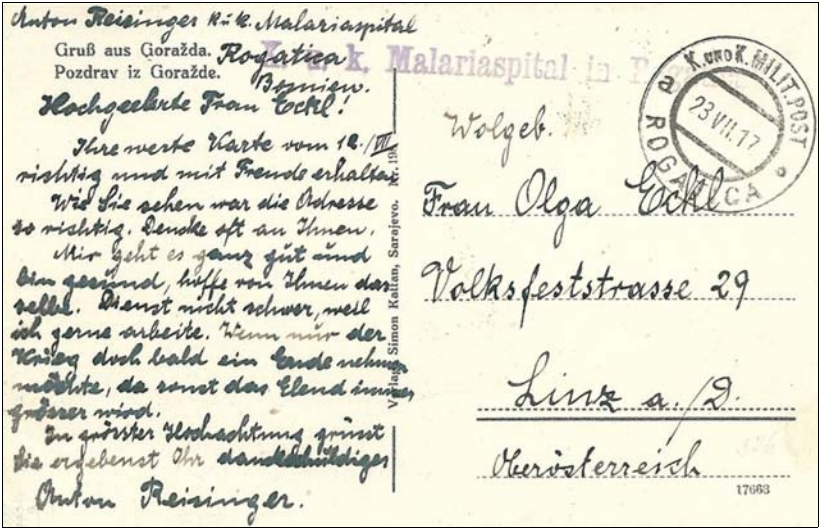 Anton Reisinger k.u.k. Malariaspital
Gruß aus Goražda. Rogatica
Pozdrav iz Goražde.
Bosnien.
Hochgeehrte Frau Eckl!
Ihre werte Karte vom 12./VII
richtig und mit Freude erhalten.
Wie Sie sehen war die Adresse
so richtig. Dencke oft an Ihnen.
Mir geht es ganz gut und
bin gesund, hoffe von Ihnen das
selbe. Dienst nicht schwer, weil
ich gerne arbeite. Wenn nur der
Krieg doch bald ein Ende nehmen
möchte, da sonst das Elend immer
grösser wird.
In grösster Hochachtung grüsst
Sie ergebenst Ihr dankschuldiger
Anton Reisinger.
Verlag Simon Kattan, Sarajevo. Nr. 19
k. u. k. Malariaspital in
K. UND K. MILIT. POST
23 VII. 17
a ROGATICA
Wolgeb.
Frau Olga Eckl
Volksfeststrasse 29
Linz a./D.
Oberösterreich
17663